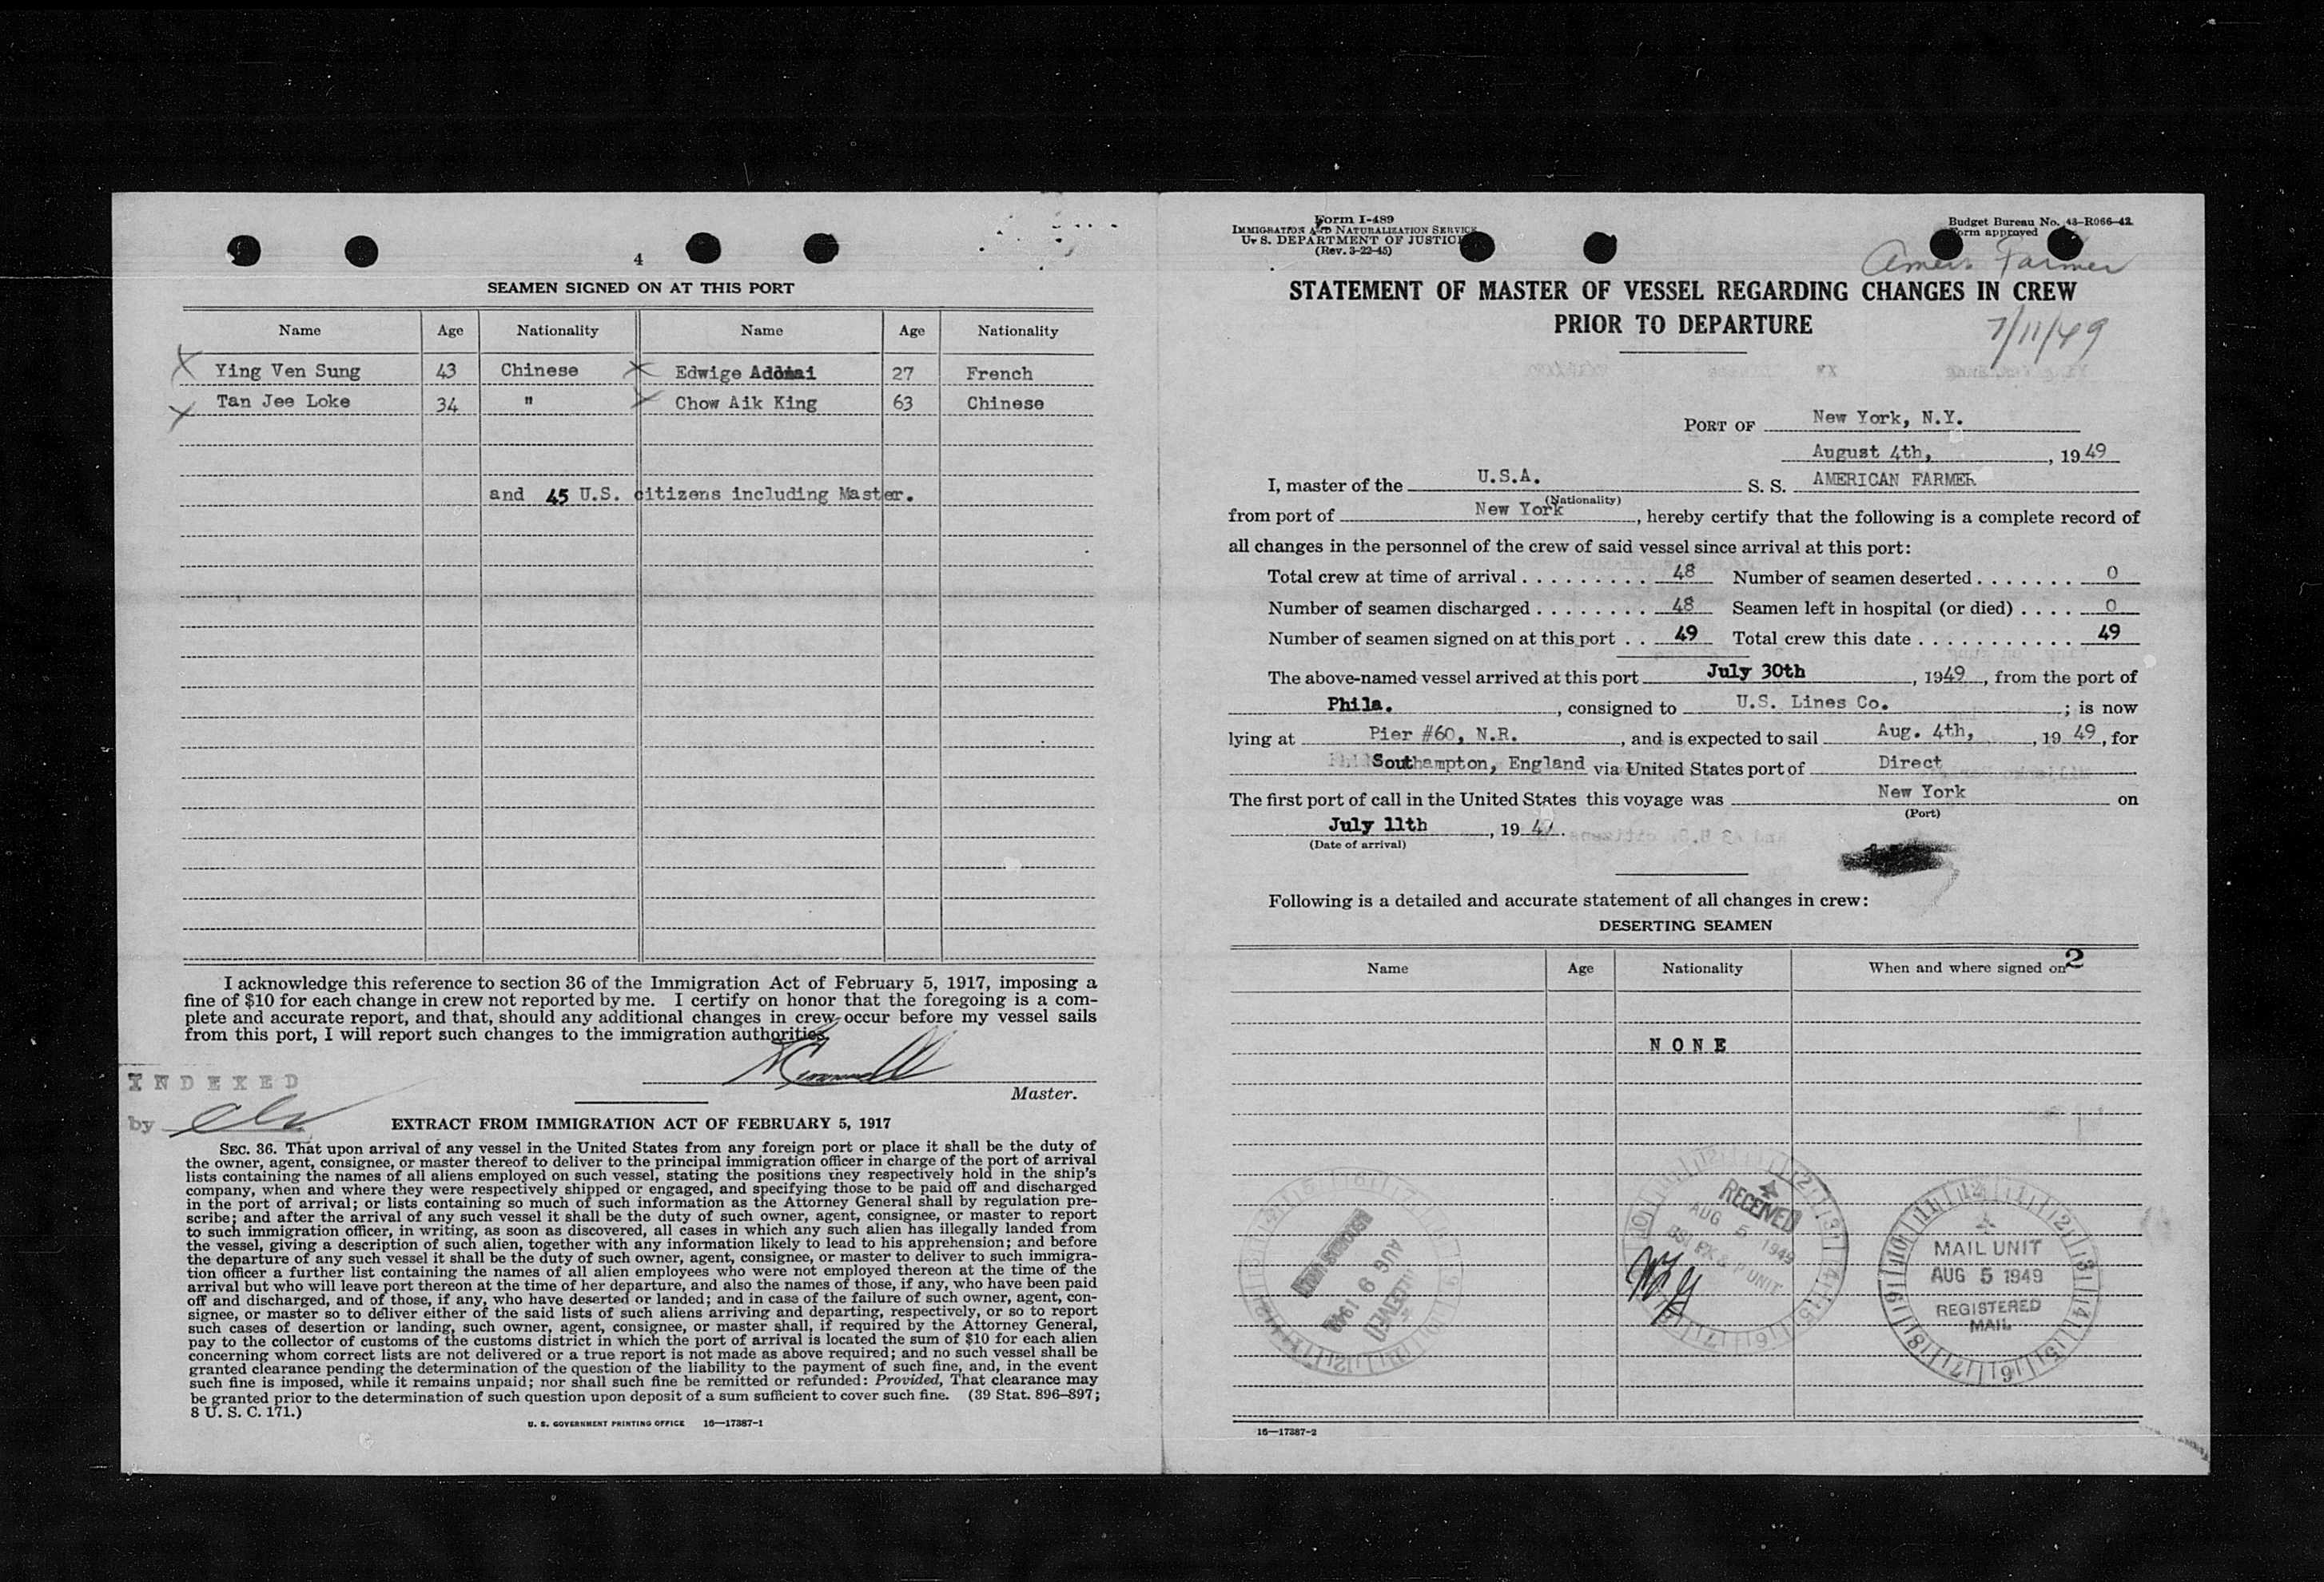 4
SEAMEN SIGNED ON AT THIS PORT
Name Age Nationality Name Age Nationality
Ying Ven Sung 43 Chinese Edwige 27 French
Tan Jee Loke 34 " Chow Aik King 63 Chinese
and 45 U.S. citizens including Master.
I acknowledge this reference to section 36 of the Immigration Act of February 5, 1917, imposing a
fine of $10 for each change in crew not reported by me. I certify on honor that the foregoing is a com-
plete and accurate report, and that, should any additional changes in crew occur before my vessel sails
from this port, I will report such changes to the immigration authorities.
Master.
INDEXED
by
EXTRACT FROM IMMIGRATION ACT OF FEBRUARY 5, 1917
SEC. 36. That upon arrival of any vessel in the United States from any foreign port or place it shall be the duty of
the owner, agent, consignee, or master thereof to deliver to the principal immigration officer in charge of the port of arrival
lists containing the names of all aliens employed on such vessel, stating the positions they respectively hold in the ship's
company, when and where they were respectively shipped or engaged, and specifying those to be paid off and discharged
in the port of arrival; or lists containing so much of such information as the Attorney General shall by regulation pre-
scribe; and after the arrival of any such vessel it shall be the duty of such owner, agent, consignee, or master to report
to such immigration officer, in writing, as soon as discovered, all cases in which any such alien has illegally landed from
the vessel, giving a description of such alien, together with any information likely to lead to his apprehension; and before
the departure of any such vessel it shall be the duty of such owner, agent, consignee, or master to deliver to such immigra-
tion officer a further list containing the names of all alien employees who were not employed thereon at the time of the
arrival but who will leave port thereon at the time of her departure, and also the names of those, if any, who have been paid
off and discharged, and of those, if any, who have deserted or landed; and in case of the failure of such owner, agent, con-
signee, or master so to deliver either of the said lists of such aliens arriving and departing, respectively, or so to report
such cases of desertion or landing, such owner, agent, consignee, or master shall, if required by the Attorney General,
pay to the collector of customs of the customs district in which the port of arrival is located the sum of $10 for each alien
concerning whom correct lists are not delivered or a true report is not made as above required; and no such vessel shall be
granted clearance pending the determination of the question of the liability to the payment of such fine, and, in the event
such fine is imposed, while it remains unpaid; nor shall such fine be remitted or refunded: Provided, That clearance may
be granted prior to the determination of such question upon deposit of a sum sufficient to cover such fine. (39 Stat. 896–897;
8 U. S. C. 171.)
U. S. GOVERNMENT PRINTING OFFICE 16—17387-1
Form I-489
IMMIGRATION AND NATURALIZATION SERVICE
U. S. DEPARTMENT OF JUSTICE
(Rev. 3-22-45)
Budget Bureau No. 43-R066-42
Form approved
Amer. Farmer
STATEMENT OF MASTER OF VESSEL REGARDING CHANGES IN CREW
PRIOR TO DEPARTURE
7/11/49
PORT OF New York, N.Y.
August 4th, , 1949
I, master of the U.S.A. S. S. AMERICAN FARMER
(Nationality)
from port of New York , hereby certify that the following is a complete record of
all changes in the personnel of the crew of said vessel since arrival at this port:
Total crew at time of arrival . . . . . . . . . 48 Number of seamen deserted . . . . . . . 0
Number of seamen discharged . . . . . . . . 48 Seamen left in hospital (or died) . . . . 0
Number of seamen signed on at this port . . 49 Total crew this date . . . . . . . . . . . . 49
The above-named vessel arrived at this port July 30th , 1949 , from the port of
Phila. , consigned to U.S. Lines Co. ; is now
lying at Pier #60, N.R. , and is expected to sail Aug. 4th, , 19 49 , for
Southampton, England via United States port of Direct
The first port of call in the United States this voyage was New York on
(Port)
July 11th , 19 49 .
(Date of arrival)
Following is a detailed and accurate statement of all changes in crew:
DESERTING SEAMEN
Name Age Nationality When and where signed on
2
NONE
RECEIVED
AUG 5 1949
UNIT
AUG 9
MAIL UNIT
AUG 5 1949
REGISTERED
MAIL
16—17387-2